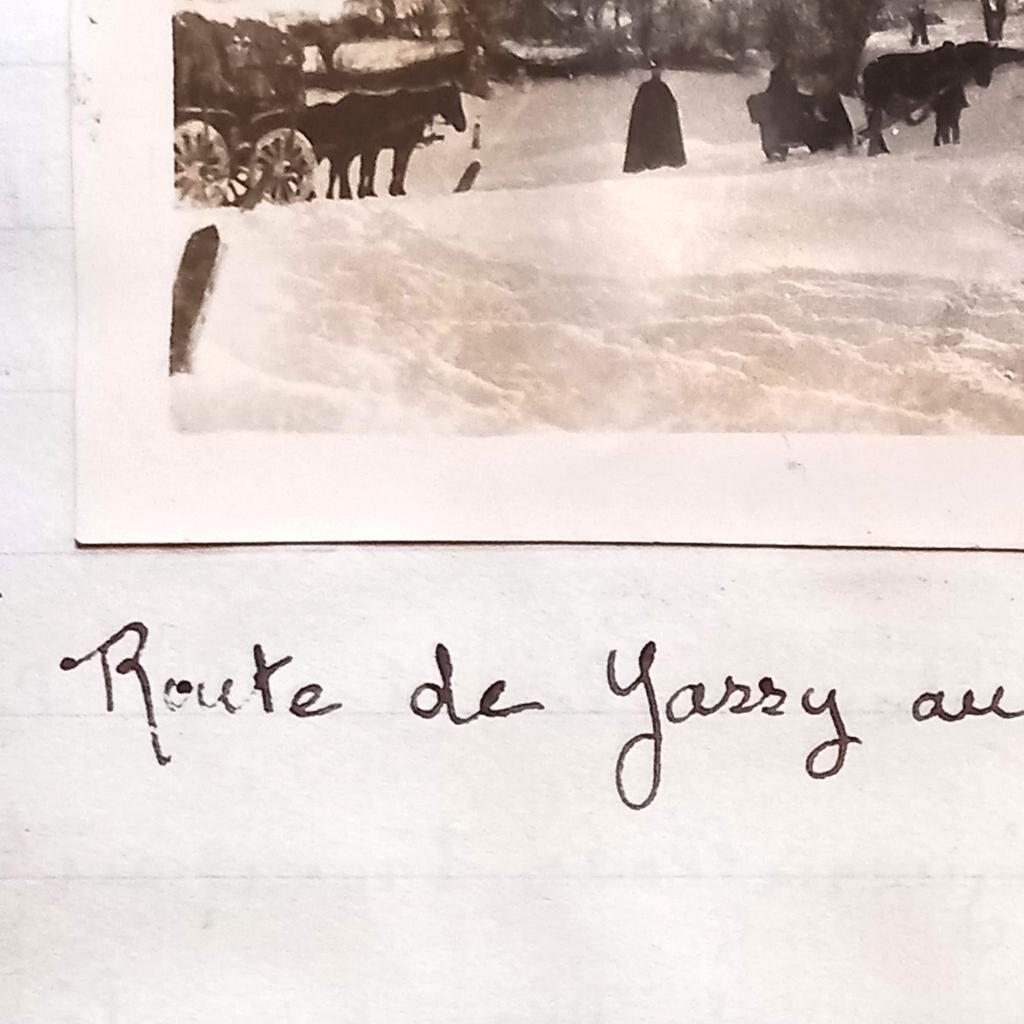 Route de Yassy au